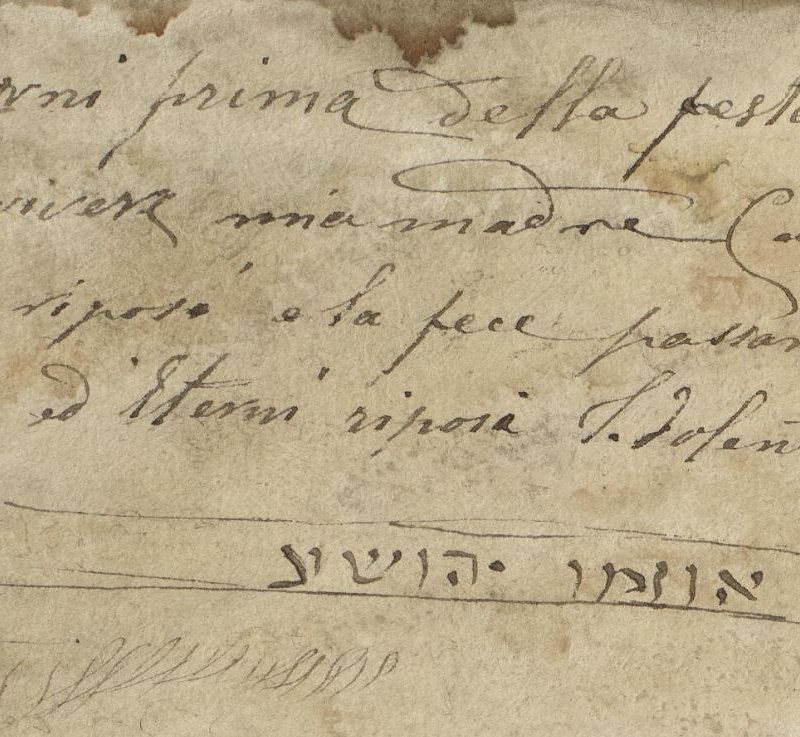 rni prima della festa
vivere mia madre
riposi e la fece passar
ed Eterni riposi S. Dolen
אוזמו יהושע